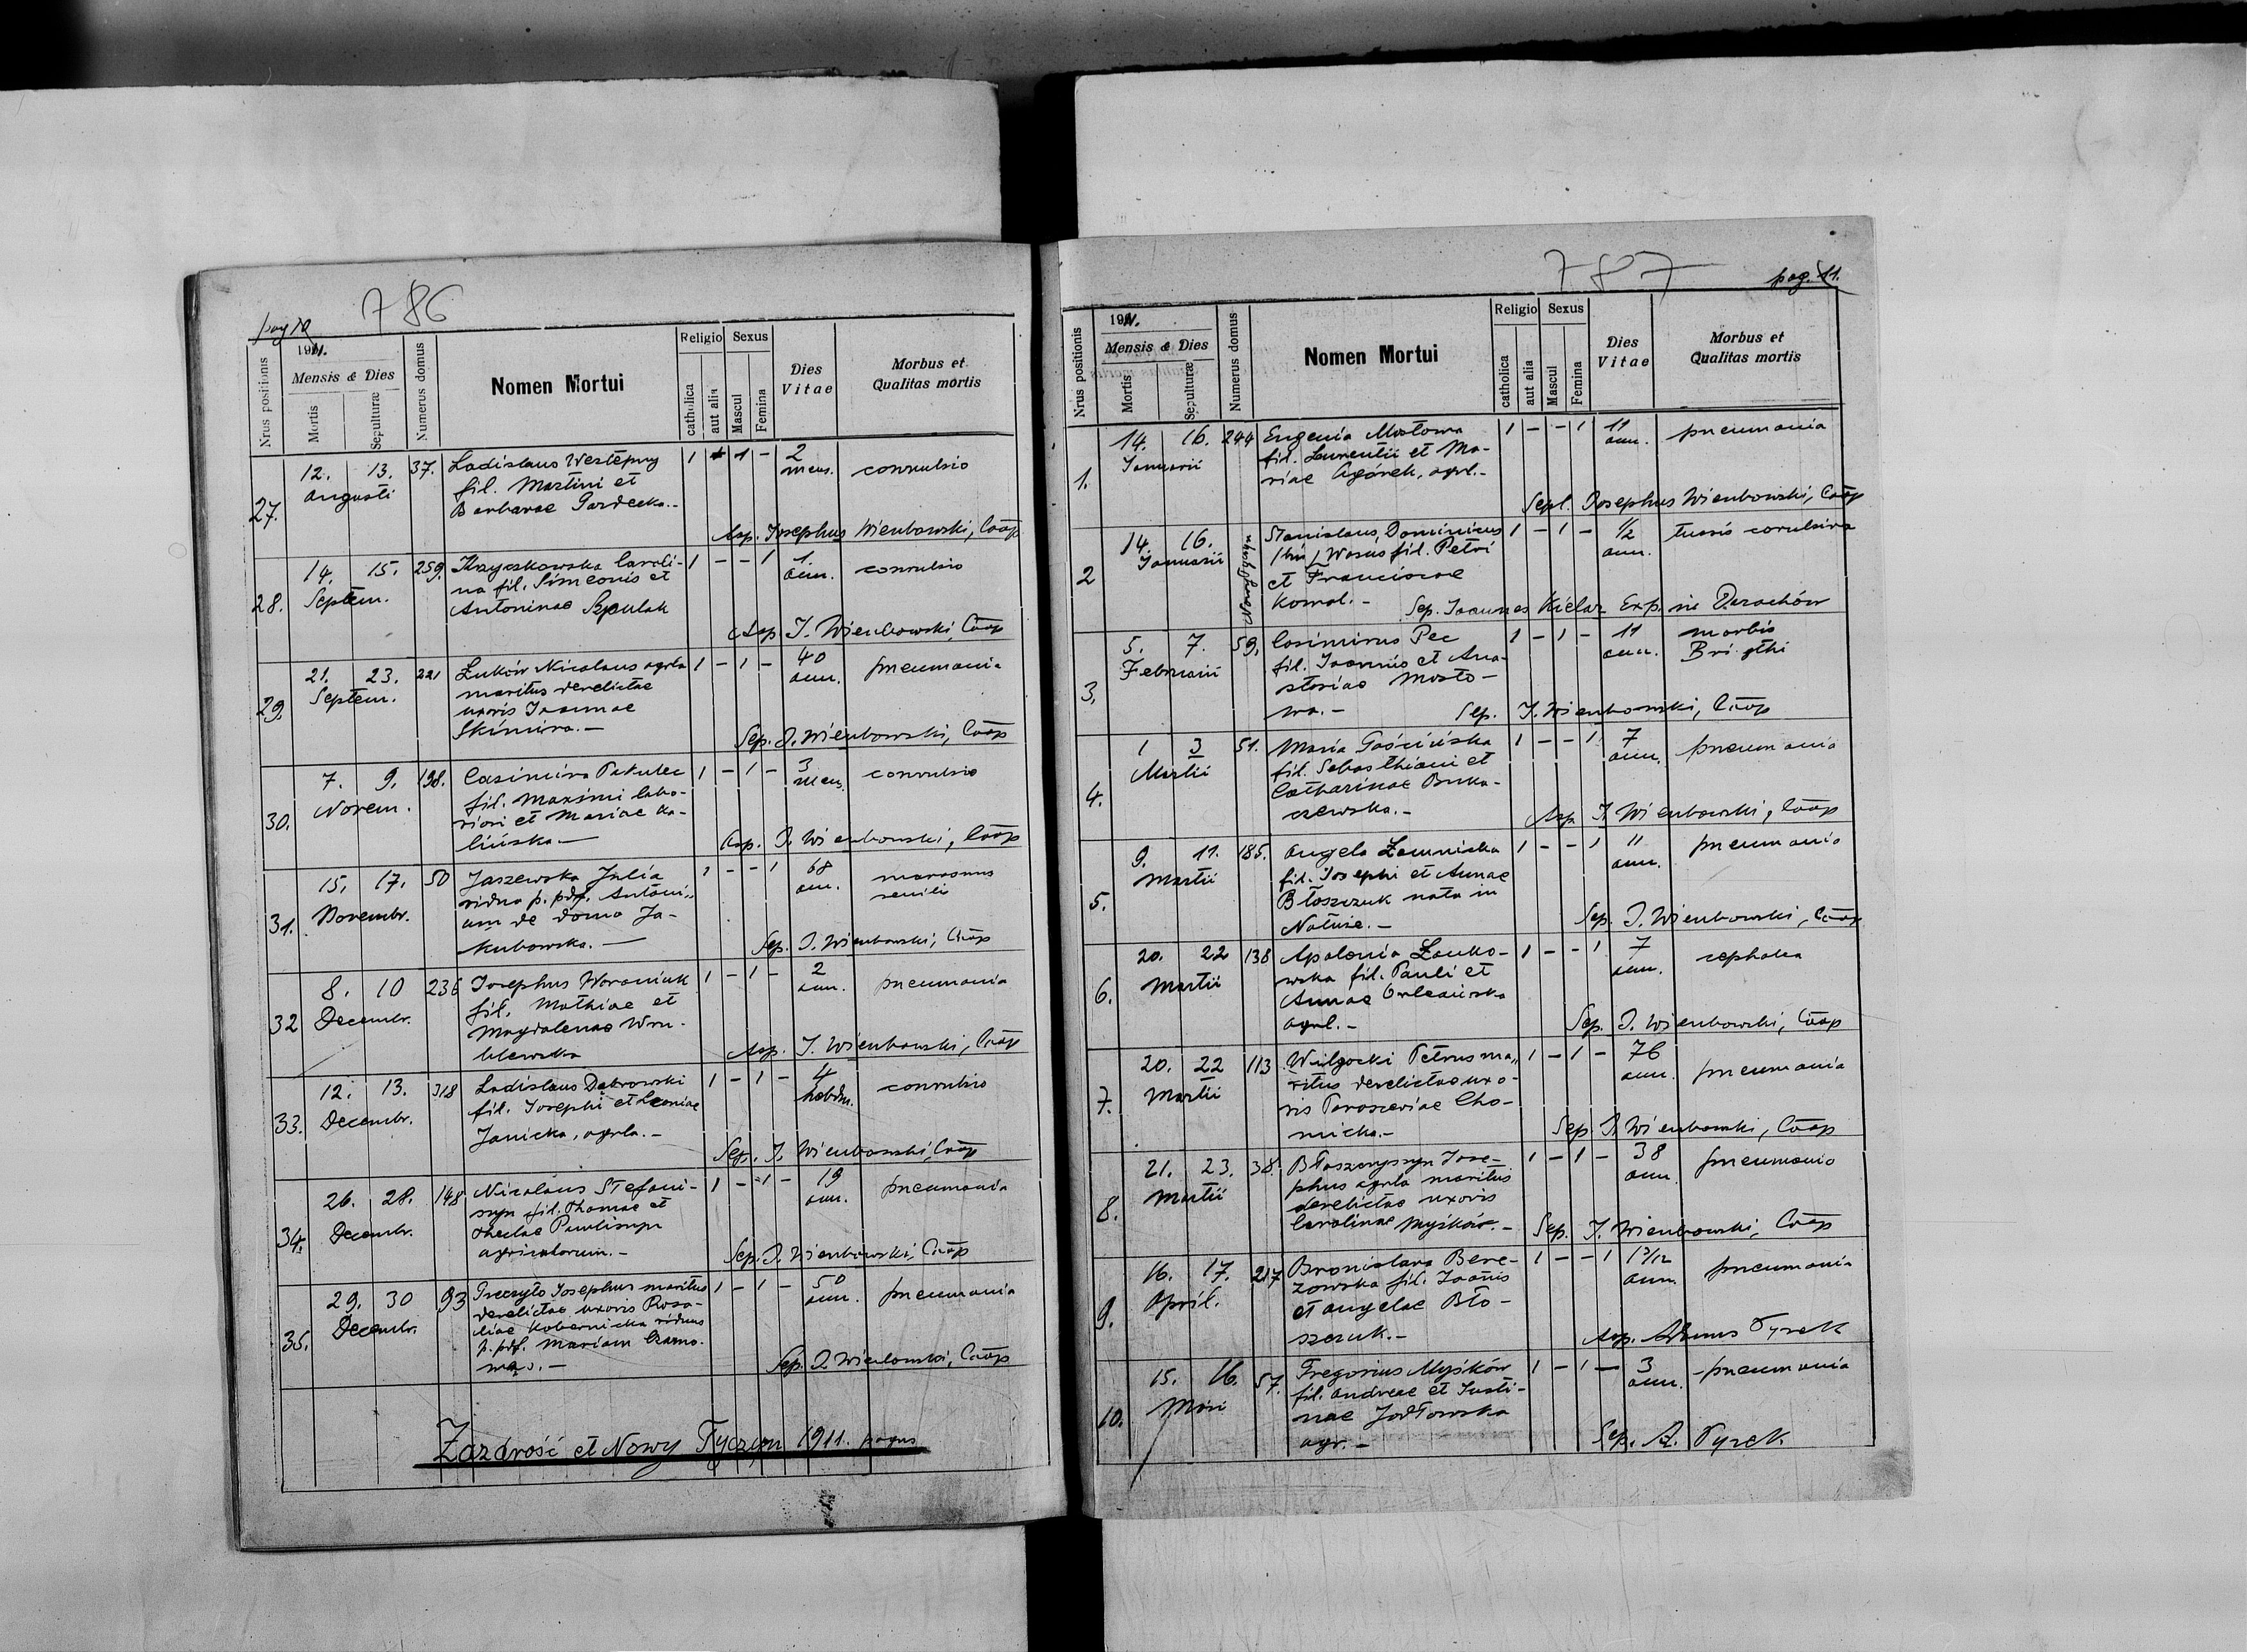 786
pag 10
Nrus positionis
1911.
Mensis & Dies
Mortis
Sepulturæ
Numerus domus
Nomen Mortui
Religio
catholica
aut alia
Sexus
Mascul
Femina
Dies Vitae
Morbus et Qualitas mortis
27. 12. 13. 37. Ladislaus Westępny 1 1 - 2 mens. convulsio
Augusti fil. Martini et
Barbarae Gardecka.-
Asp. Josephus Wienbowski, Coop
28. 14. 15. 259. Krzyczkowska Caroli- 1 - - 1 1 ann. convulsio
Septem. na fil. Simeonis et
Antoninae Szpulak
Asp J. Wienbowski, Coop
29. 21. 23. 221 Łuków Nicolaus agrla 1 - 1 - 40 ann. pneumonia
Septem. maritus derelictae
uxoris Joannae
Skimira.-
Sep. J. Wienbowski, Coop
30. 7. 9. 198. Casimira Pakulec 1 - 1 - 3 mens. convulsio
Novem. fil. Maximi labo-
riosi et Mariae Ka-
lińska-
Asp. J. Wienbowski, Coop
31. 15. 17. 50 Jaszewska Julia 1 - - 1 68 ann. marasmus senilis
Novembr. vidua p. pdf. Antoni„
um de domo Ja-
kubowska.-
Sep. J. Wienbowski, Coop
32 8. 10 236 Josephus Woroniuk 1 - 1 - 2 ann. pneumonia
Decembr. fil. Mathiae et
Magdalenae Wró-
blewska
Asp. J. Wienbowski, Coop
33. 12. 13. 318 Ladislaus Dabrowski 1 - 1 - 4 hebdm. convulsio
Decembr. fil. Josephi et Leoniae
Janicka, agrla.-
Sep. J. Wienbowski, Coop
34. 26. 28. 148 Nicolaus Stefani- 1 - 1 - 19 ann. pneumonia
Decembr. szyn fil. Thomae et
Theclae Pawliszyn
agricolarum.-
Sep. J. Wienbowski, Coop
35. 29. 30 93 Preczyło Josephus maritus 1 - 1 - 50 ann. pneumonia
Decembr. derelictae uxoris Rosa-
liae Kobernicka viduus
p. pdf. Mariam
Sep. J. Wienbowski, Coop
Zazdrość et Nowy Tyczyn 1911. pagus
787
pag. 11.
Nrus positionis
1911.
Mensis & Dies
Mortis
Sepulturæ
Numerus domus
Nomen Mortui
Religio
catholica
aut alia
Sexus
Mascul
Femina
Dies Vitae
Morbus et Qualitas mortis
1. 14. 16. 244 Eugenia Mostowa 1 - - 1 11 ann. pneumonia
Januarii fil. Laurentii et Ma-
riae Ogórek, agrl.-
Sepl. Josephus Wienbowski, Coop
2 14. 16. Nowy Tyczyn Stanislaus, Dominicus 1 - 1 - 1/2 ann. tussis convulsiva
Januarii Wasus fil. Petri
et Franciscae
Kowal.-
Sep. Joannes Kielar Exp. in Darachów
3. 5. 7. 59. Casimirus Pec 1 - 1 - 11 ann. morbis Brigthi
Februarii fil. Joannis et Ana-
stasiae Mosto-
wa.-
Sep. J. Wienbowski, Coop
4. 1 3 51. Maria Gościńska 1 - - 1 7 ann. pneumonia
Martii fil. Sebasthiani et
Catharinae Buka-
czewska.-
Asp J. Wienbowski, Coop
5. 9. 11. 185. Angela Łamnicka 1 - - 1 11 ann. pneumonia
Martii fil. Josephi et Annae
Błoszczuk nata in
Nałuże.-
Sep. J. Wienbowski, Coop
6. 20. 22 138 Apolonia Łanko- 1 - - 1 7 ann. cephalea
Martii wska fil. Pauli et
Annae Orleańska
agrl.-
Sep. J. Wienbowski, Coop
7. 20. 22 113 Wilgocki Petrus ma„ 1 - 1 - 76 ann. pneumonia
Martii ritus derelictae uxo-
ris Parasceviae Cho-
micka.-
Sep. J. Wienbowski, Coop
8. 21. 23. 38. Błaszczyszyn Jose- 1 - 1 - 38 ann. pneumonia
Martii phus agrla maritus
derelictae uxoris
Carolinae Myśków.-
Sep. J. Wienbowski, Coop
9. 16. 17. 217 Bronislava Bere- 1 - - 1 1 3/12 ann. pneumonia
April. zowska fil. Joanis
et Angelae Bło-
szczuk.-
Asp. Adamus Tyrek
10. 15. 16. 57. Gregorius Myśków 1 - 1 - 3 ann. pneumonia
Maii fil. Andreae et Justi-
nae Jodłowska
agr.-
Sep. A. Tyrek